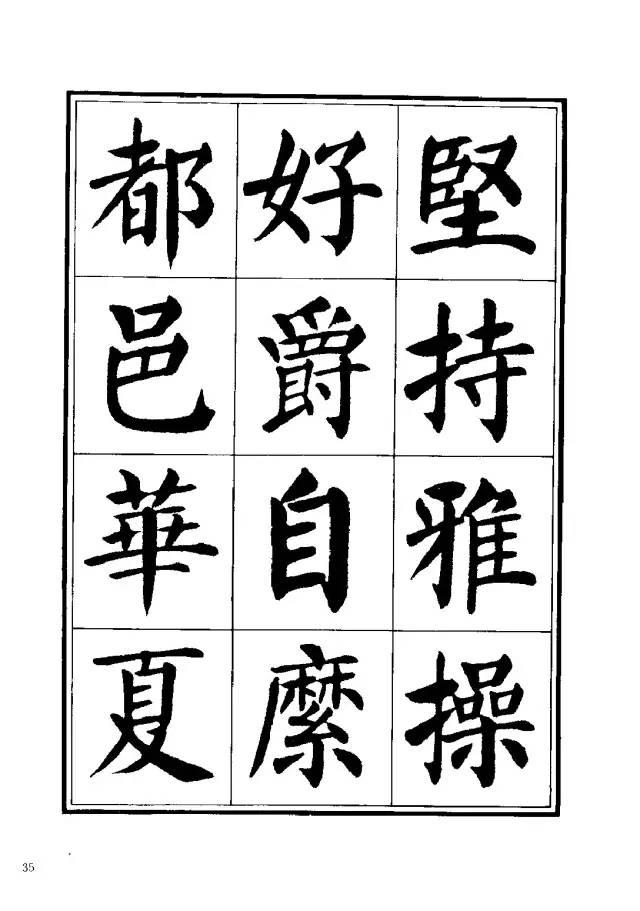 堅持雅操
好爵自縻
都邑華夏
35